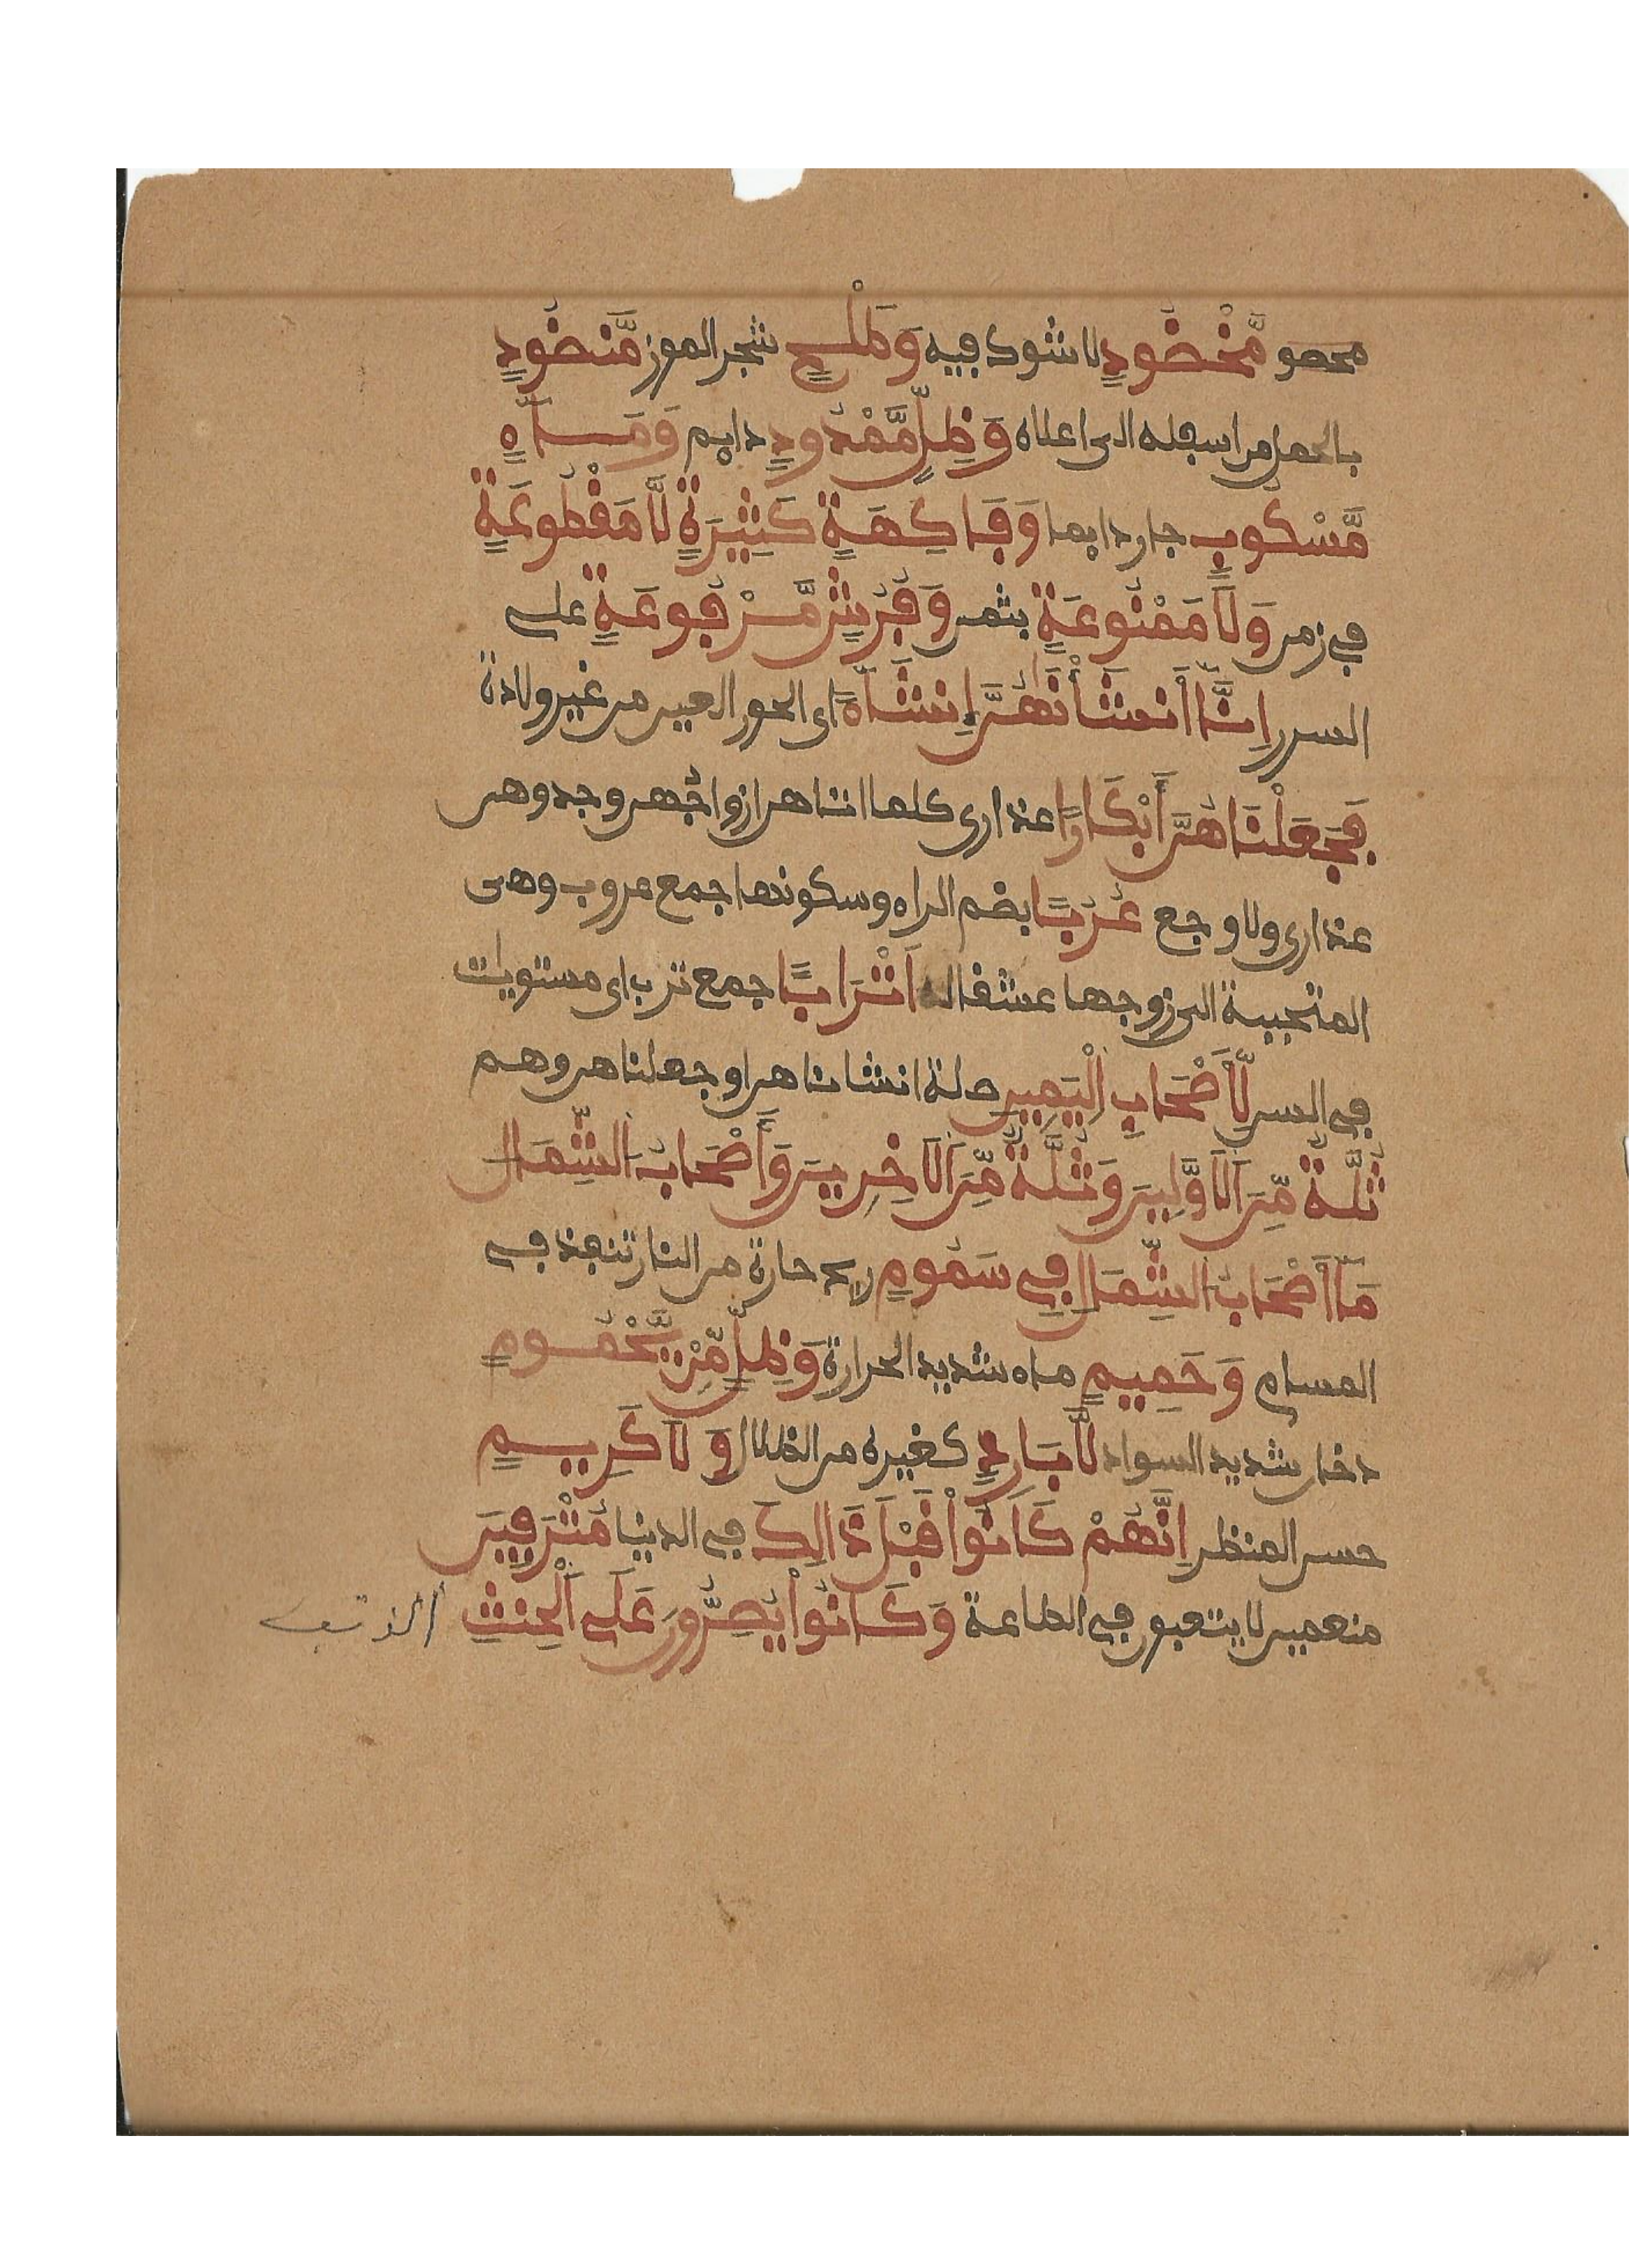 محصو مَّخْضُودٍ لا شوك فيه وَطَلْحٍ شجر الموز مَّنضُودٍ
بالحمل من اسفله الى اعلاه وَظِلٍّ مَّمْدُودٍ دايم وَمَآءٍ
مَّسْكُوبٍ جار دايما وَفَاكِهَةٍ كَثِيرَةٍ لَّا مَقْطُوعَةٍ
في زمن وَلَا مَمْنُوعَةٍ بثمن وَفُرُشٍ مَّرْفُوعَةٍ على
السرر إِنَّا أَنشَأْنَٰهُنَّ إِنشَآءً اى الحور العين من غير ولادة
فَجَعَلْنَاهُنَّ أَبْكَارًا عذارى كلما اتاهن ازواجهن وجدوهن
عذارى ولا وجع عُرُبًا بضم الراء وسكونها جمع عروب وهى
المتحببة الى زوجها عشقا له أَتْرَابًا جمع ترب اى مستويات
في السن لِّأَصْحَابِ الْيَمِينِ صلة انشاناهن او جعلناهن وهم
ثُلَّةٌ مِّنَ الْأَوَّلِينَ وَثُلَّةٌ مِّنَ الْآخِرِينَ وَأَصْحَابُ الشِّمَالِ
مَا أَصْحَابُ الشِّمَالِ فِي سَمُومٍ ريح حارة من النار تنفذ في
المسام وَحَمِيمٍ ماء شديد الحرارة وَظِلٍّ مِّنْ يَّحْمُومٍ
دخان شديد السواد لَّا بَارِدٍ كغيره من الظلال وَلَا كَرِيمٍ
حسن المنظر إِنَّهُمْ كَانُواْ قَبْلَ ذَالِكَ في الدنيا مُتْرَفِينَ
منعمين لا يتعبون في الطاعة وَكَانُواْ يُصِرُّونَ عَلَى الْحِنثِ الذنب